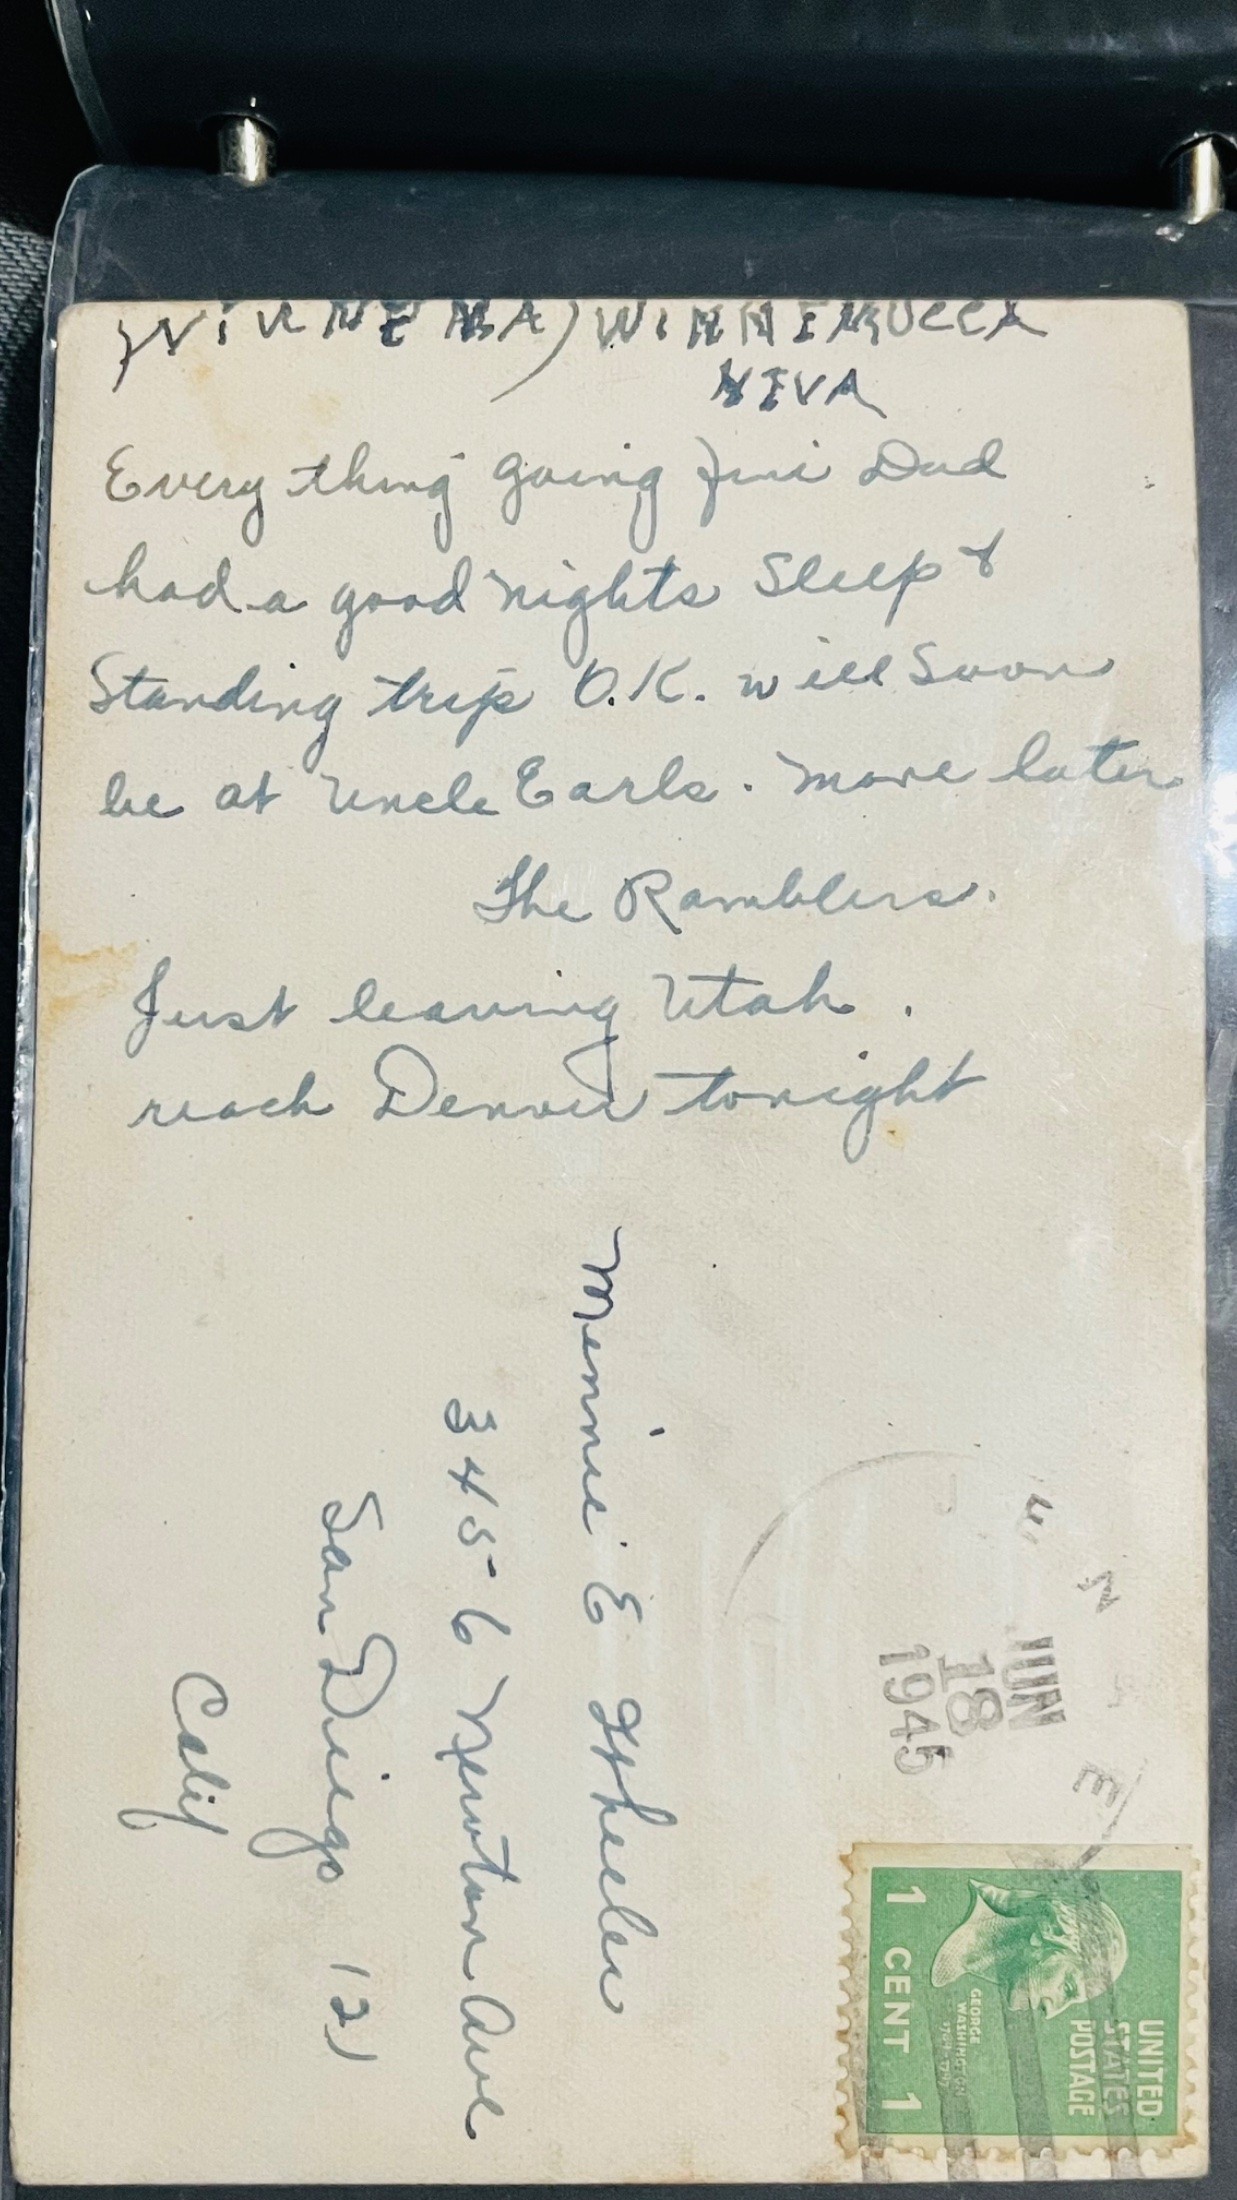 WINNEMUCCA
NEVA
Every thing going fine Dad
had a good nights Sleep &
Standing trip O.K. will Soon
be at Uncle Earls. more later
The Ramblers.
Just leaving Utah.
reach Denver tonight
Minnie E Wheeler
3456 Newton Ave
San Diego 12)
Calif
N E
JUN
18
1945
UNITED
STATES
POSTAGE
GEORGE
WASHINGTON
1789-1797
1 CENT 1